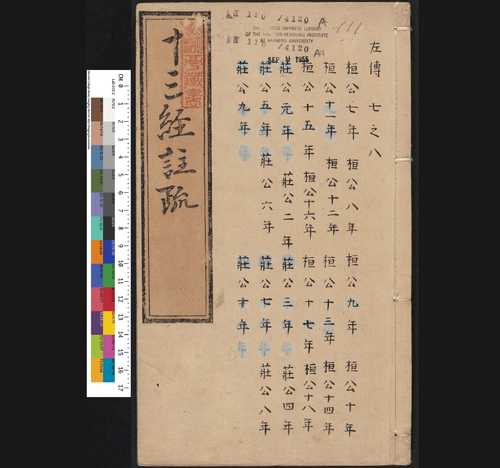 14120
OF THE HARVARD-YENCHING INSTITUTE
HARVARD UNIVERSITY
14120
SEP 9 1955
左傳 七之八
桓公七年 桓公八年 桓公九年 桓公十年
桓公十一年 桓公十二年 桓公十三年 桓公十四年
桓公十五年 桓公十六年 桓公十七年 桓公十八年
莊公元年 莊公二年 莊公三年 莊公四年
莊公五年 莊公六年 莊公七年 莊公八年
莊公九年 莊公十年
十三經註疏
CM 0 1 2 3 4 5 6 7 8 9 10 11 12 13 14 15 16 17